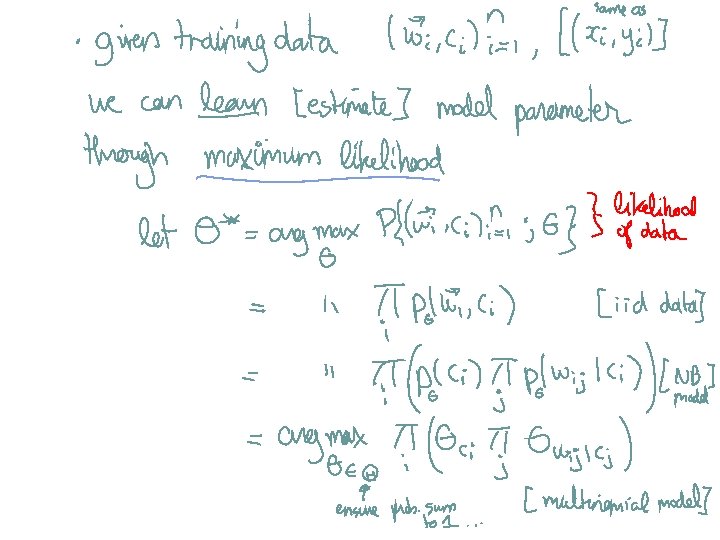 same as
· given training data (w⃗i, ci) n i=1, [(xi, yi)]
we can learn [estimate] model parameter
through maximum likelihood
let θ* = arg max θ P{(w⃗i, ci) n i=1 ; θ} } likelihood of data
= " ∏ i pθ(w⃗i, ci) [iid data]
= " ∏ i (pθ(ci) ∏ j pθ(wij | ci)) [NB model]
= arg max θ∈Θ ∏ i (θci ∏ j θwij|cj)
↑
ensure prob. sum to 1 ... [multinomial model]